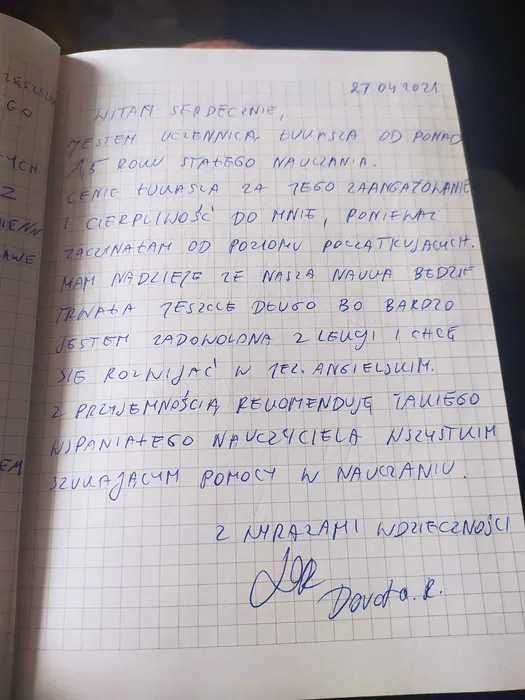 ZESZŁU
GO
YCH
Z
IENN
AWE
EM
27.04.2021
WITAM SERDECZNIE,
JESTEM UCZENNICĄ ŁUKASZA OD PONAD
1,5 ROKU STAŁEGO NAUCZANIA.
CENIĘ ŁUKASZA ZA JEGO ZAANGAŻOWANIE
I CIERPLIWOŚĆ DO MNIE, PONIEWAŻ
ZACZYNAŁAM OD POZIOMU POCZĄTKUJĄCYCH.
MAM NADZIEJĘ ŻE NASZA NAUKA BĘDZIE
TRWAŁA JESZCZE DŁUGO BO BARDZO
JESTEM ZADOWOLONA Z LEKCJI I CHCĘ
SIĘ ROZWIJAĆ W JĘZ. ANGIELSKIM.
Z PRZYJEMNOŚCIĄ REKOMENDUJĘ TAKIEGO
WSPANIAŁEGO NAUCZYCIELA WSZYSTKIM
SZUKAJĄCYM POMOCY W NAUCZANIU.
Z WYRAZAMI WDZIĘCZNOŚCI
Dorota. R.